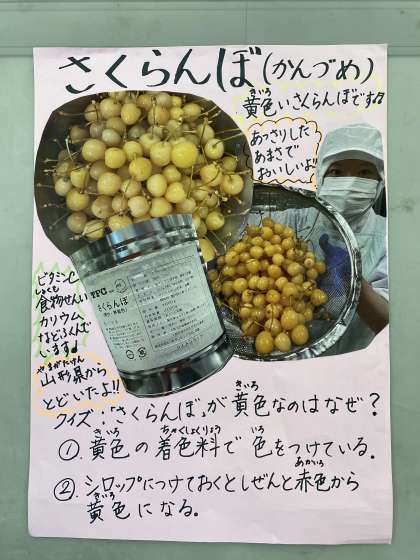 さくらんぼ(かんづめ)
きいろ
黄色いさくらんぼです♬
あっさりした
あまさで
おいしいよ!!
ビタミンC
しょくもつ
食物せんい
カリウム
などふくんで
います♩
やまがたけん
山形県から
とどいたよ!!
TFC
さくらんぼ
きいろ
クイズ:「さくらんぼ」が黄色なのはなぜ?
きいろ ちゃくしょくりょう いろ
①.黄色の着色料で色をつけている.
あかいろ
②.シロップにつけておくとしぜんと赤色から
きいろ
黄色になる.